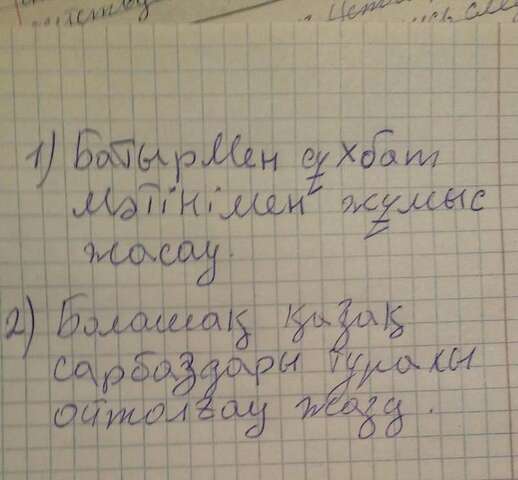 1) Батырмен сұхбат
мәтінімен жұмыс
жасау.
2) Болашақ қазақ
сарбаздары туралы
ойтолғау жазу.